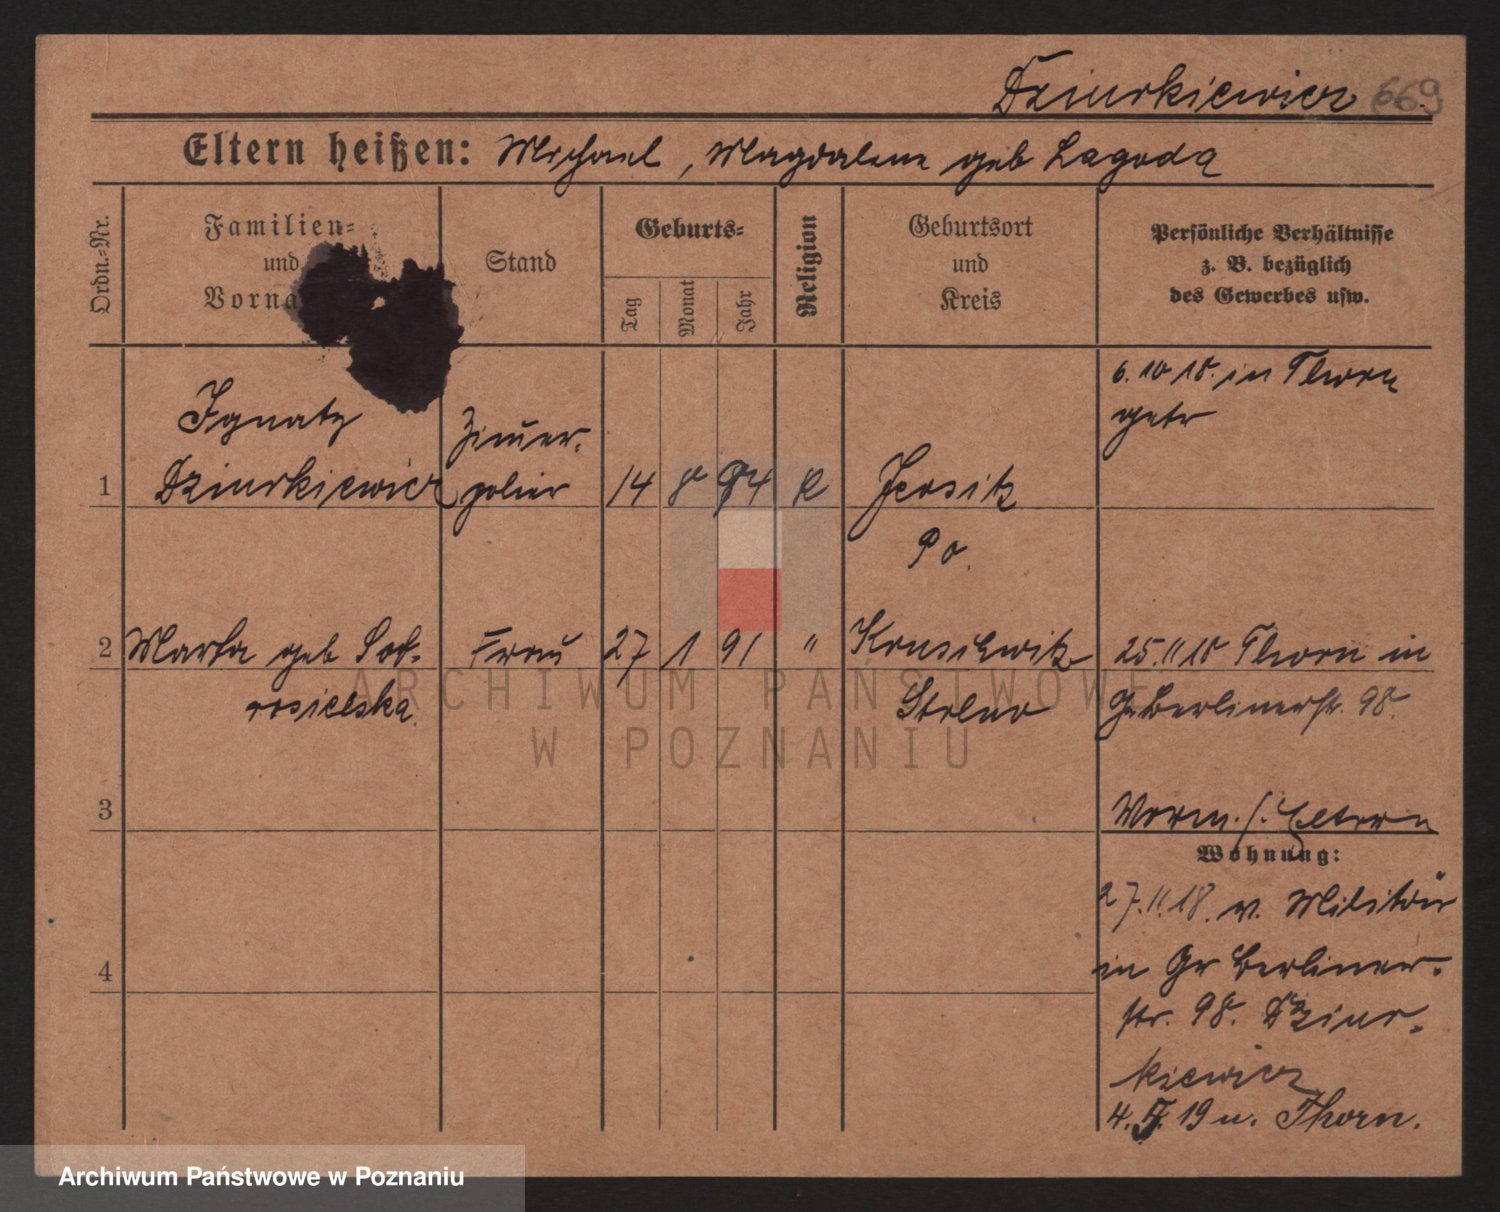 Dziurkiewicz 669
Eltern heißen: Michael, Magdalene geb Lagoda
Ordn.-Nr.
Familien-
und
Vorna
Stand
Geburts-
Tag
Monat
Jahr
Religion
Geburtsort
und
Kreis
Persönliche Verhältnisse
z. B. bezüglich
des Gewerbes usw.
6. 10 18. in Thorn
getr
Ignatz
Zimer-
1 Dziurkiewicz polier 14 8 94 R Jersitz
Po.
2 Marta geb Sod- Frau 27 1 91 " Kruschwitz 25.11 18 Thorn in
rosielska. Strelno Gr. Berlinerstr. 98.
3 Worm. s. Eltern
Wohnung:
27.11.18. v. Militär
4 in Gr Berliner-
str. 98. Dziur-
kiewicz
4. 19 n. Thorn.
ARCHIWUM PAŃSTWOWE
W POZNANIU
Archiwum Państwowe w Poznaniu